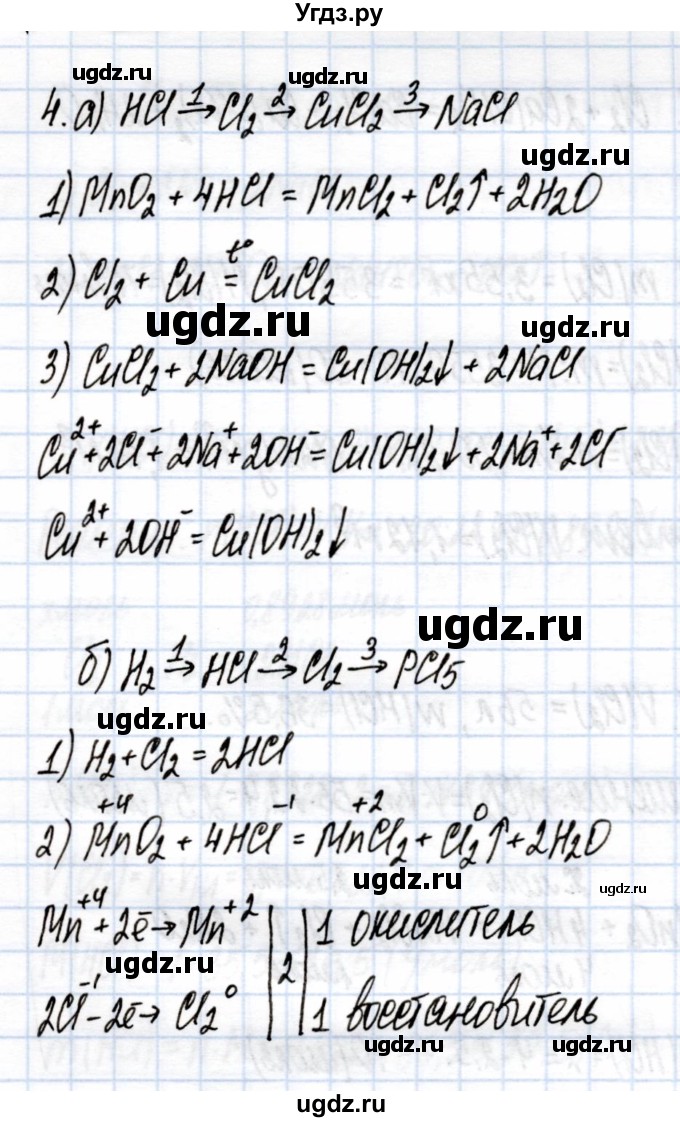 Угдз.ру
ugdz.ru ugdz.ru
4. а) HCl →¹ Cl₂ →² CuCl₂ →³ NaCl
ugdz.ru
1) MnO₂ + 4HCl = MnCl₂ + Cl₂↑ + 2H₂O
2) Cl₂ + Cu =^t° CuCl₂
ugdz.ru ugdz.ru
3) CuCl₂ + 2NaOH = Cu(OH)₂↓ + 2NaCl
Cu²⁺ + 2Cl⁻ + 2Na⁺ + 2OH⁻ = Cu(OH)₂↓ + 2Na⁺ + 2Cl⁻
Cu²⁺ + 2OH⁻ = Cu(OH)₂↓
ugdz.ru
б) H₂ →¹ HCl →² Cl₂ →³ PCl5
ugdz.ru
1) H₂ + Cl₂ = 2HCl
+4 -1 +2 0
2) MnO₂ + 4HCl = MnCl₂ + Cl₂↑ + 2H₂O
ugdz.ru ugdz.ru
Mn⁺⁴ + 2ē → Mn⁺² | | 1 окислитель
ugdz.ru 2 ugdz.ru
2Cl⁻¹ - 2ē → Cl₂⁰ | | 1 восстановитель
ugdz.ru ugdz.ru
ugdz.ru